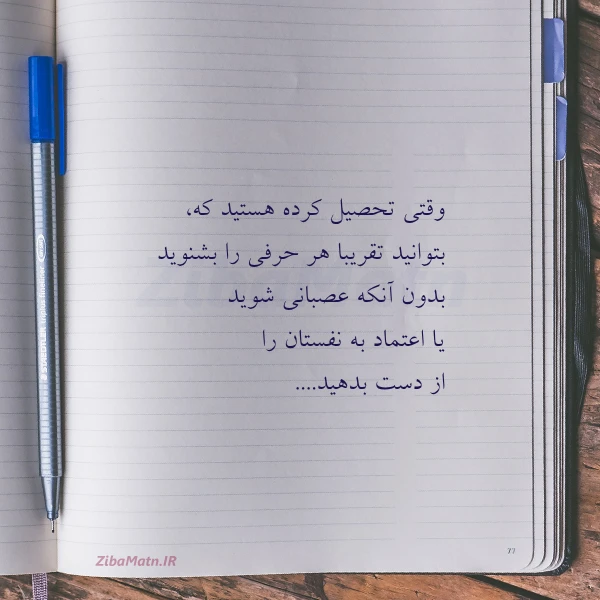 وقتی تحصیل کرده هستید که،
بتوانید تقریبا هر حرفی را بشنوید
بدون آنکه عصبانی شوید
یا اعتماد به نفستان را
از دست بدهید....
77
ZibaMatn.IR